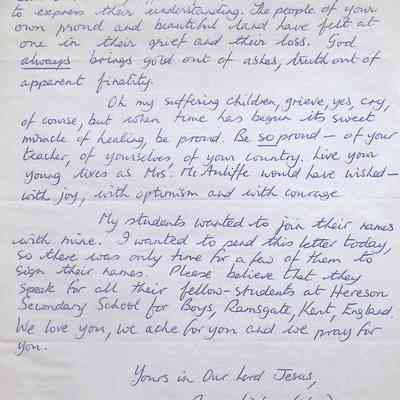 to express their understanding. The people of your
own proud and beautiful land have felt at
one in their grief and their loss. God
always brings gold out of ashes, truth out of
apparent finality.
Oh my suffering children, grieve, yes, cry,
of course, but when time has begun its sweet
miracle of healing, be proud. Be so proud – of your
teacher, of yourselves, of your country. Live your
young lives as Mrs. McAuliffe would have wished –
with joy, with optimism and with courage
My students wanted to join their names
with mine. I wanted to send this letter today,
so there was only time for a few of them to
sign their names. Please believe that they
speak for all their fellow-students at Hereson
Secondary School for Boys, Ramsgate, Kent, England.
We love you, we ache for you and we pray for
you.
Yours in Our Lord Jesus,